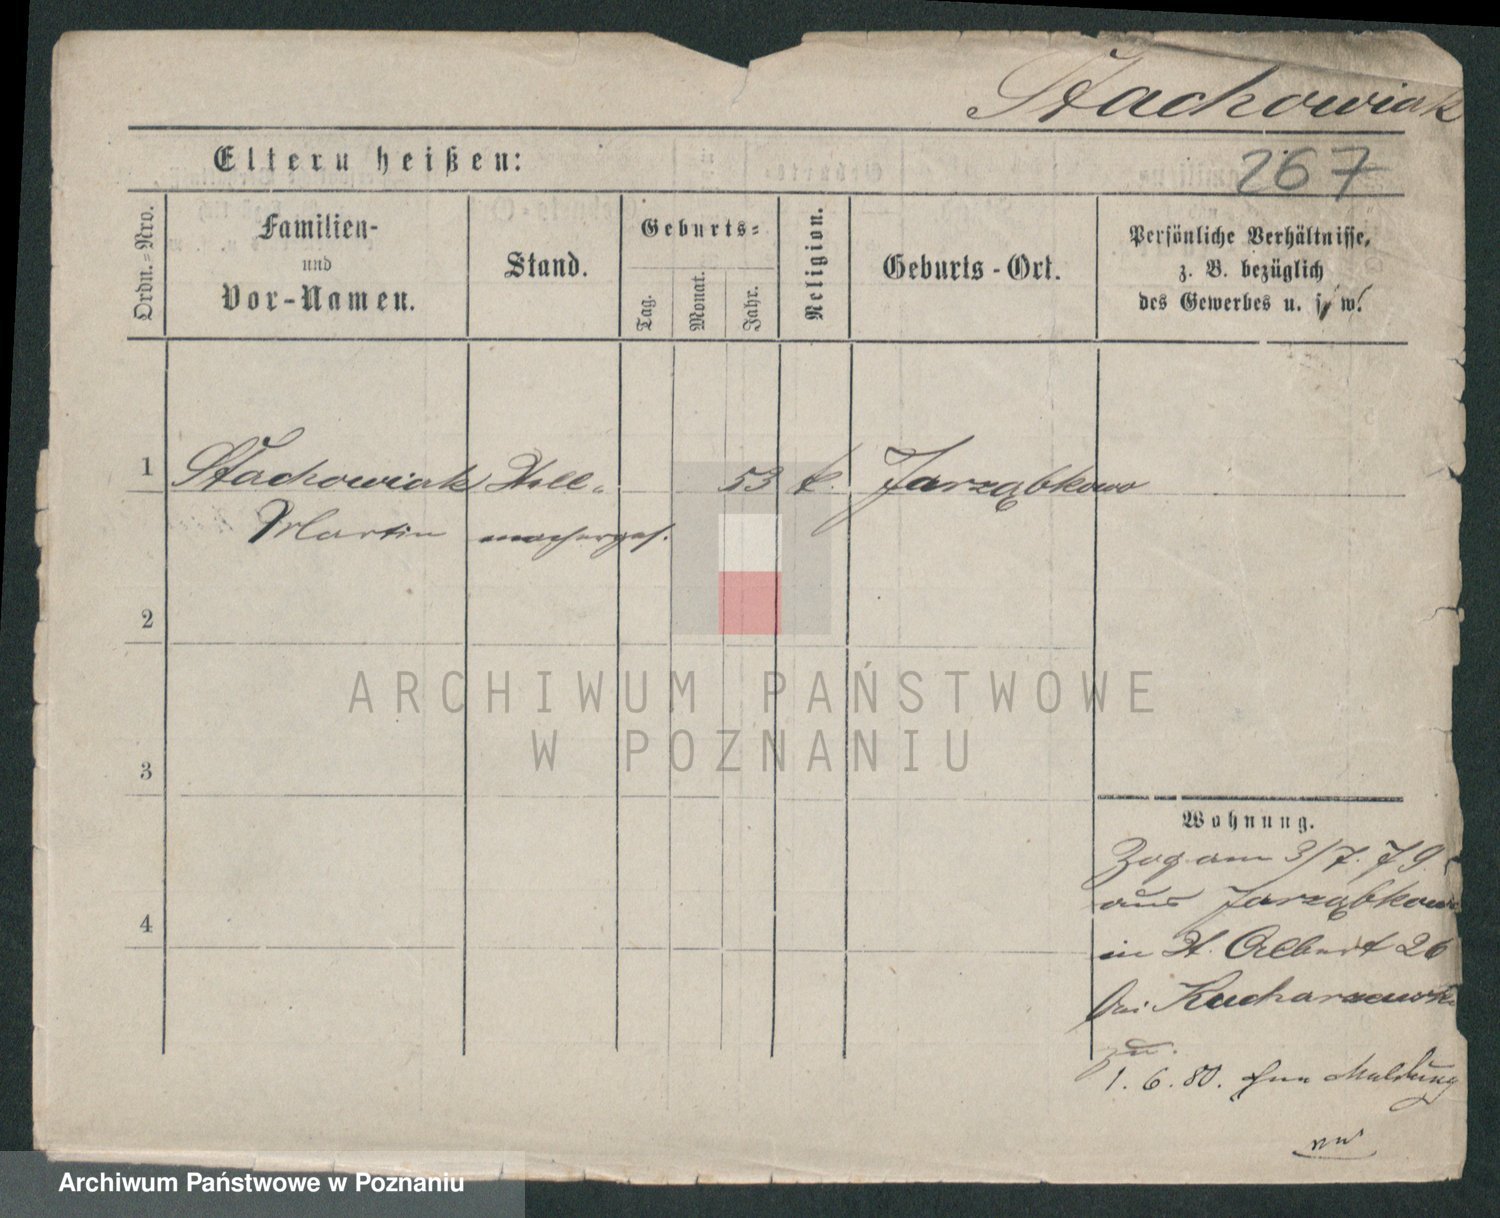 Stachowiak
267
Eltern heißen:
Ordn.-Nro.
Familien-
und
Vor-Namen.
Stand.
Geburts-
Tag.
Monat.
Jahr.
Religion.
Geburts-Ort.
Persönliche Verhältnisse,
z. B. bezüglich
des Gewerbes u. s. w.
1 Stachowiak Stell- 53 k. Jarząbkowo
Martin machergs.
2
3
4
Wohnung.
Zog am 3/7. 79.
aus Jarząbkowo
in St. Albert 26
bei
zu.
1. 6. 80. Meldung
ARCHIWUM PAŃSTWOWE
W POZNANIU
Archiwum Państwowe w Poznaniu